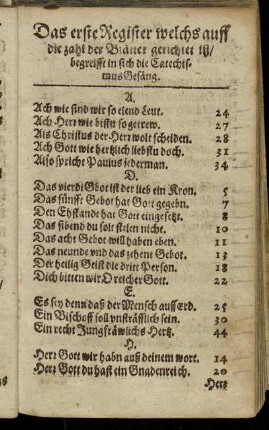 Das erste Register welchs auff
die zahl der Blätter gerichtet ist/
begreifft in sich die Catechis-
mus Gesäng.
A.
Ach wie sind wir so elend Leut. 24
Ach Herr wie bistu so getrew. 27
Als Christus der Herr wolt scheiden. 28
Ach Gott wie hertzlich liebstu doch. 31
Also spricht Paulus jederman. 34
D.
Das vierdt Gbot ist der lieb ein Kron. 5
Das fünffte Gebot hat Gott gegebn. 7
Den Ehstandt hat Gott eingesetzt. 8
Das sibend du solt stelen nicht. 10
Das acht Gebot will haben eben. 11
Das neunde vnd das zehene Gebot. 13
Der heilig Geist die dritt Person. 18
Dich bitten wir O reicher Gott. 22
E.
Es sey denn daß der Mensch auff Erd. 25
Ein Bischoff soll vnsträfflich sein. 30
Ein recht Jungfräwlichs Hertz. 44
H.
Herr Gott wir habn auß deinem wort. 14
Herr Gott du hast ein Gnadenreich. 20
Hertz